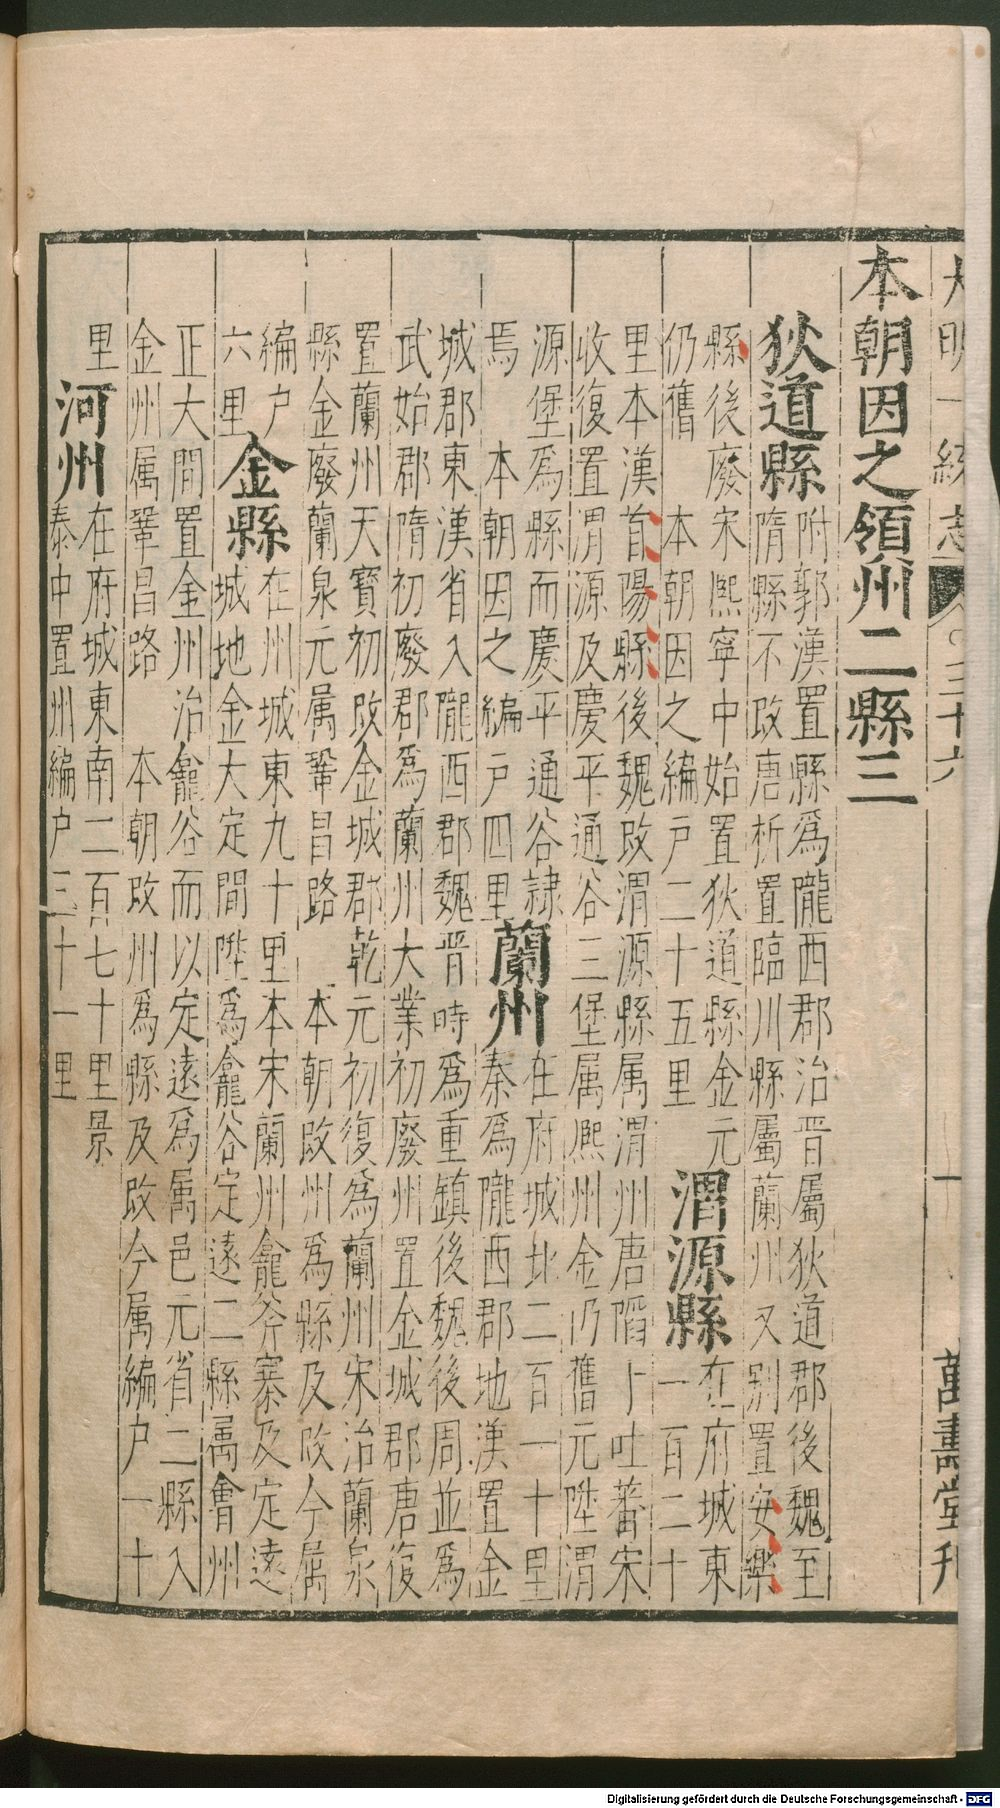 大明一統志 三十六 一 萬壽堂刊
本朝因之領州二縣三
狄道縣 附郭漢置縣爲隴西郡治晋屬狄道郡後魏至
隋縣不改唐析置臨川縣屬蘭州又别置安樂
縣後廢宋熙寧中始置狄道縣金元
仍舊 本朝因之編戸二十五里
渭源縣 在府城東
一百二十
里本漢首陽縣後魏改渭源縣属渭州唐陷于吐蕃宋
收復置渭源及慶平通谷三堡属熙州金仍舊元陞渭
源堡爲縣而慶平通谷隷
焉 本朝因之編戸四里
蘭州 在府城北二百一十里
秦爲隴西郡地漢置金
城郡東漢省入隴西郡魏晋時爲重鎮後魏後周並爲
武始郡隋初廢郡爲蘭州大業初廢州置金城郡唐復
置蘭州天寳初改金城郡乾元初復爲蘭州宋治蘭泉
縣金廢蘭泉元属鞏昌路 本朝改州爲縣及改今属
編户
六里
金縣 在州城東九十里本宋蘭州龕谷寨及定遠
城地金大定間陞爲龕谷定遠二縣属會州
正大間置金州治龕谷而以定遠爲属邑元省二縣入
金州属鞏昌路 本朝改州爲縣及改今属編户一十
里
河州 在府城東南二百七十里景
泰中置州編户三十一里
Digitalisierung gefördert durch die Deutsche Forschungsgemeinschaft - DFG